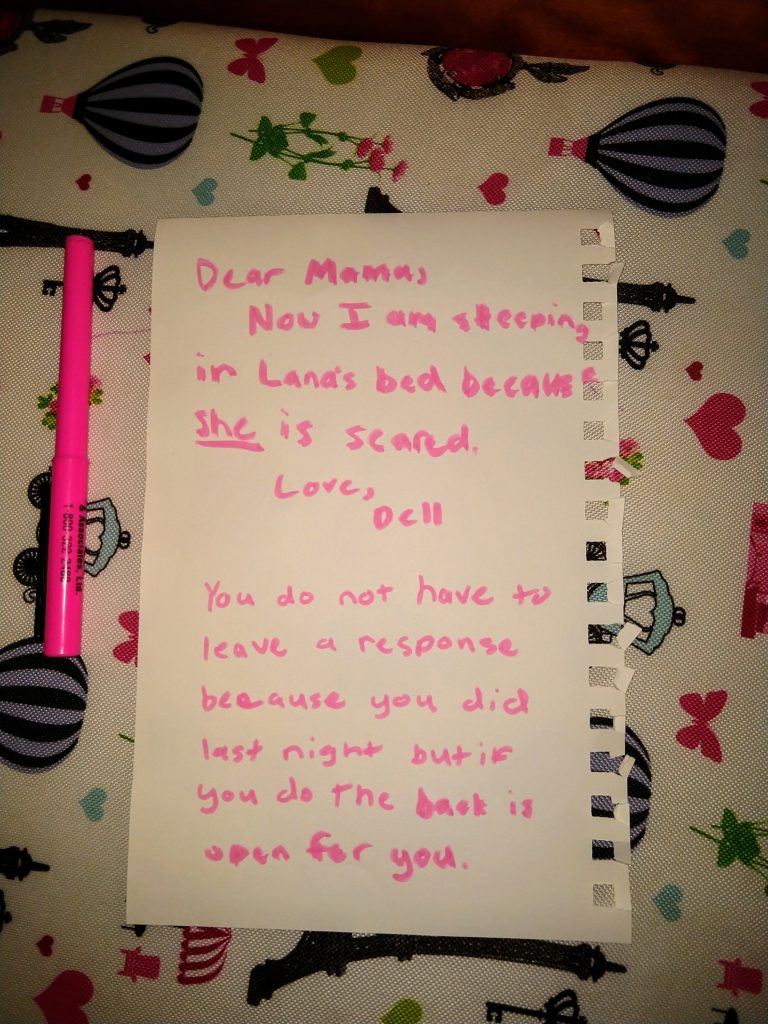 Dear Mama,
Now I am sleeping
in Lana's bed because
she is scared.
Love,
Dell
You do not have to
leave a response
because you did
last night but if
you do the back is
open for you.
& Associates, Ltd.